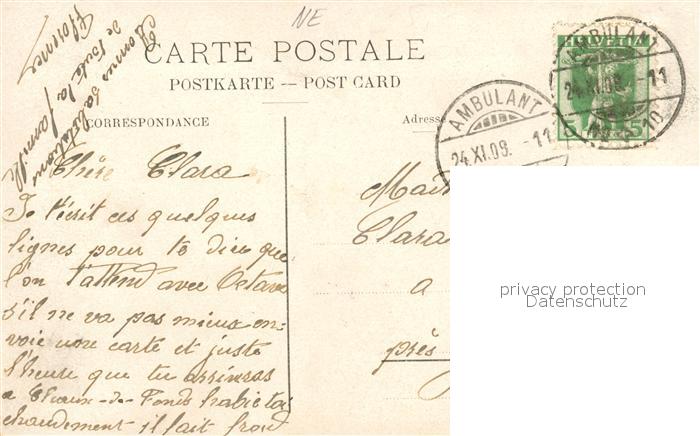 NE
CARTE POSTALE
POSTKARTE — POST CARD
CORRESPONDANCE
Adresse
HELVETIA
5 5
AMBULANT
24.XI.09. - 11
AMBULANT
24.XI.09. - 11
Nº 10
Bonnes Salutations
de toute la famille
Chère Clara
Je t'écrit ces quelques
lignes pour te dire que
l'on t'attend avec Octave
s'il ne va pas mieux en-
voie une carte et juste
l'heure que tu arriveras
a Chaux-de-Fonds habie toi
chaudement il fait froid
Clara
a
près
privacy protection
Datenschutz